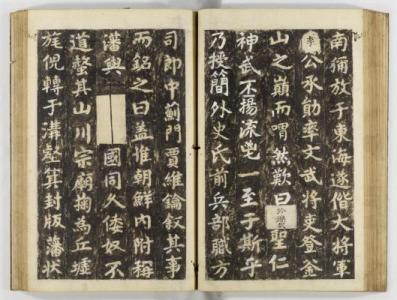 南獮放于東海遂偕大將軍
李公承勛率文武將吏登釜
山之巔而喟然歎曰聖仁
神武丕揚深兇一至于斯乎
乃授簡外史氏前兵部職方
司郎中薊門賈維鑰叙其事
而銘之曰蓋惟朝鮮內附稱
藩與國同久倭奴不
道螫其山川宗廟掬為丘墟
旄倪轉于溝壑箕封版藩狀